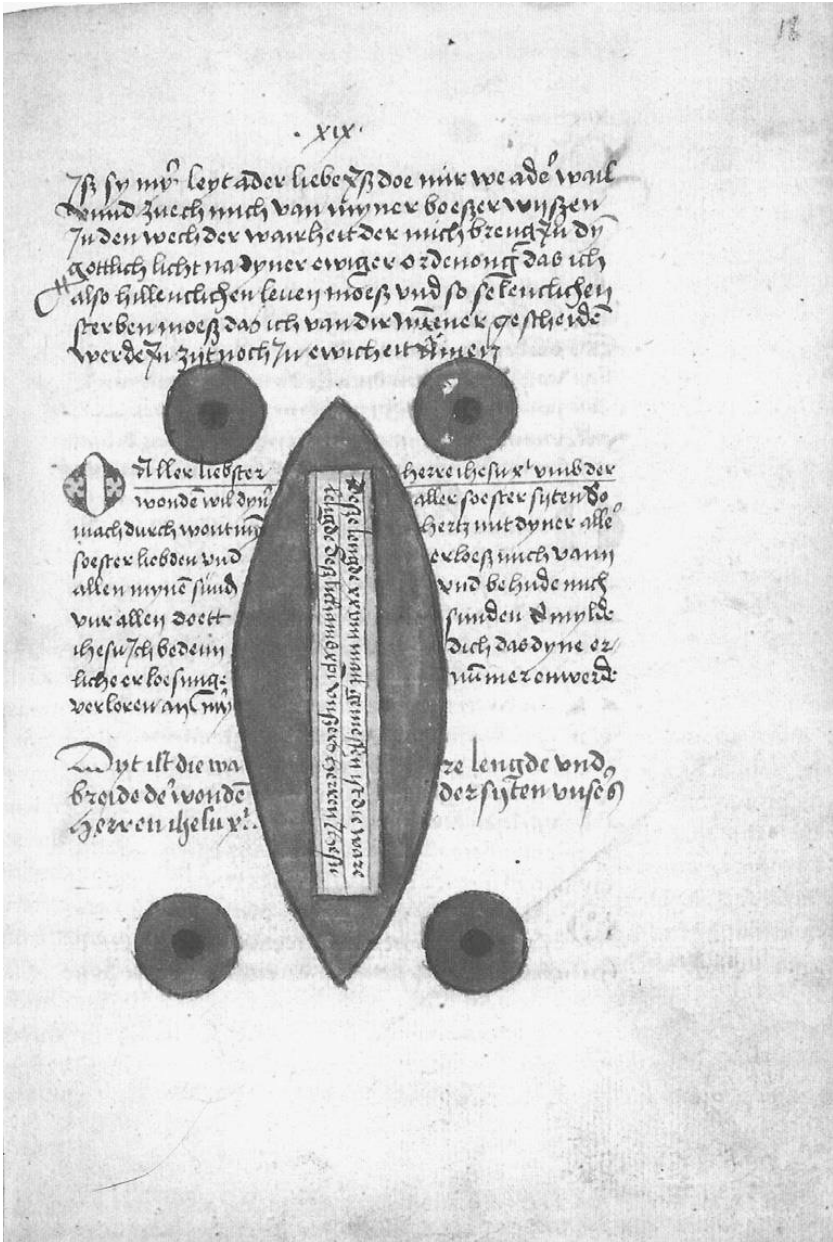 18
· xıx ·
Iß sy mÿr leyt ader liebe Iß doe mir we ader wail
vnnd zuech mich van myner boeßer wyßen
In den wech der wairheit der mich breng In dÿ
gottlich licht na dyner ewiger ordenong das ich
also hillenclichen leuen moeß vnd so selenclichen
sterben moeß das ich van dir nũmmer gescheidē
werde In zijt noch In ewicheit Amen
O Aller liebster herre ihesu xr̃ vmb der
wondē wil dyñ aller soester sijten So
mach durch wont mÿ hertz mit dyner allē
soester liebden vnd erloeß mich vann
allen mynē sund vnd behude mich
vur allen doett sunden O mylde
ihesu Ich bedenn dich das dyne er-
liche erloesunge nũmmer en werde
verloren an mÿ
Dyt ist die wa re lengde vnd
breide de wonden der sijten vnses
herren ihesu xr̃.
Deße lengde xxvııı mail gemeßen ist die ware
lengde deß lichams vnßers herren Ihesu